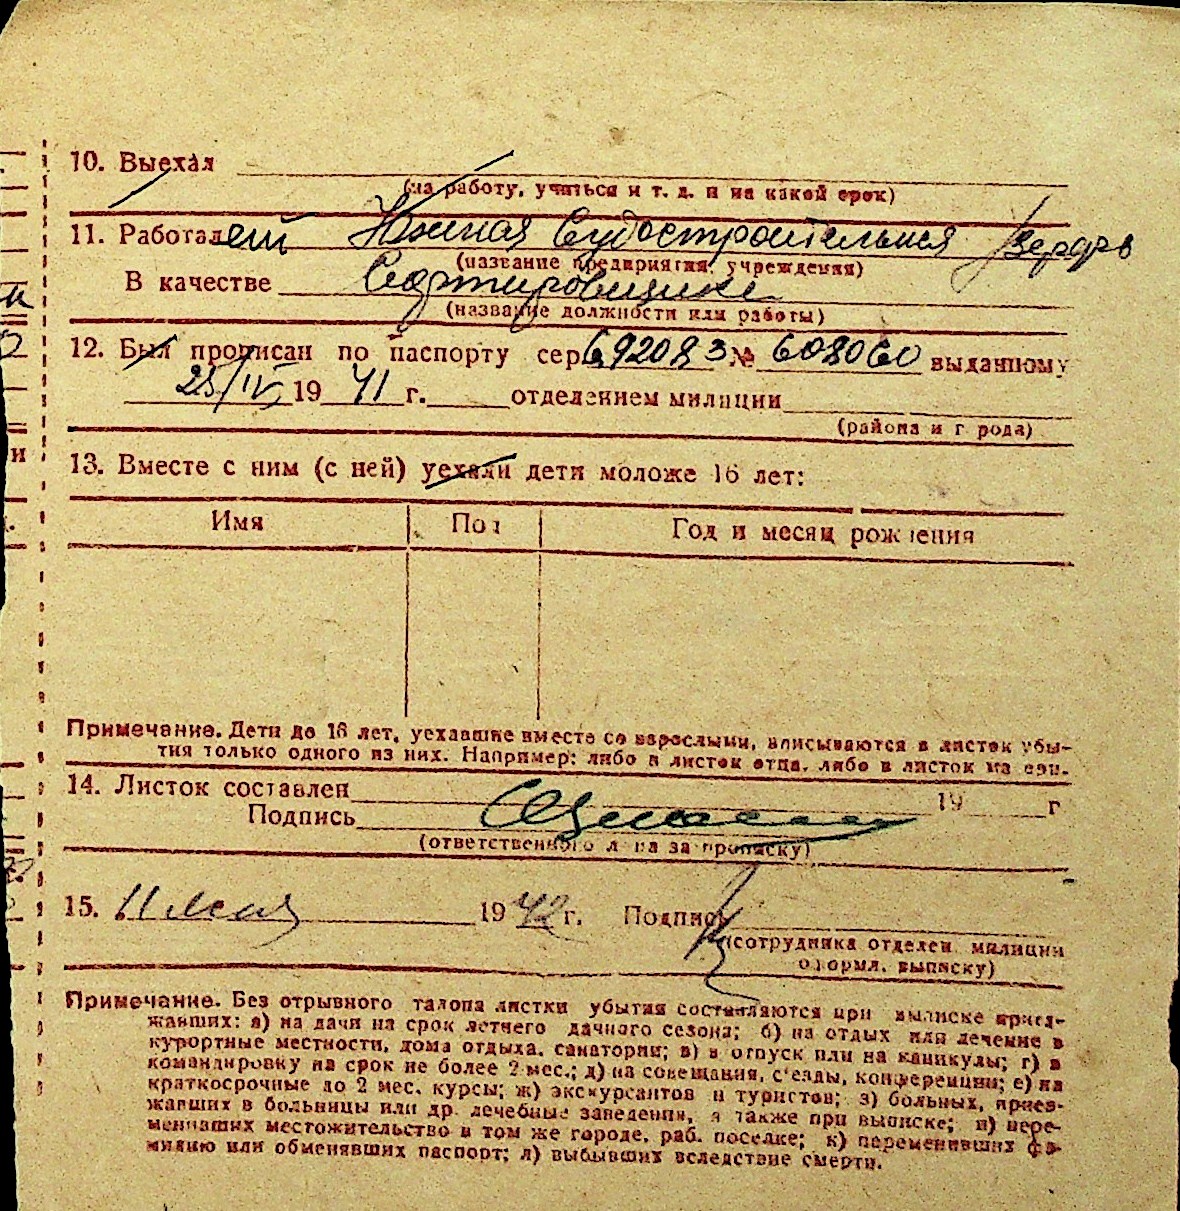 10. Выехал
(на работу, учиться и т. д. и на какой срок)
11. Работал ет Южная Судостроительная Верфь
(название предприятия, учреждения)
В качестве Сортировщика
(название должности или работы)
12. Был прописан по паспорту сер. 692083 № 608060 выданному
25/IV 19 41 г. отделением милиции
(района и города)
13. Вместе с ним (с ней) уехали дети моложе 16 лет:
Имя Пол Год и месяц рождения
Примечание. Дети до 16 лет, уехавшие вместе со взрослыми, вписываются в листок убы-
тия только одного из них. Например: либо в листок отца, либо в листок ма ери.
14. Листок составлен 19 г
Подпись
(ответственного лица за прописку)
15. 11 мая 19 42 г. Подпись
(сотрудника отделен. милиции
оформл. выписку)
Примечание. Без отрывного талона листки убытия составляются при выписке приез-
жавших: а) на дачи на срок летнего дачного сезона; б) на отдых или лечение в
курортные местности, дома отдыха, санатории; в) в отпуск или на каникулы; г) в
командировку на срок не более 2 мес.; д) на совещания, с'езды, конференции; е) на
краткосрочные до 2 мес. курсы; ж) экскурсантов и туристов; з) больных, приез-
жавших в больницы или др. лечебные заведения, а также при выписке; и) пере-
менивших местожительство в том же городе, раб. поселке; к) переменивших фа-
милию или обменявших паспорт; л) выбывших вследствие смерти.